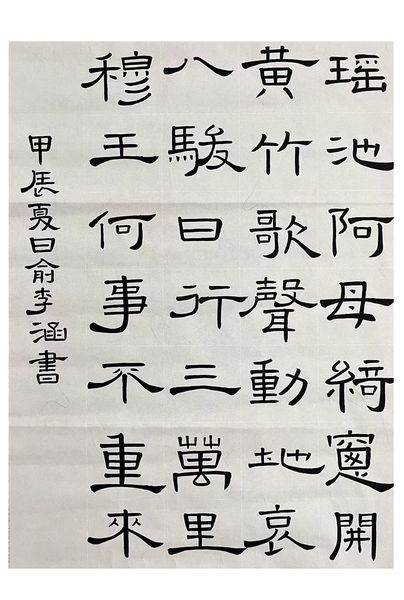 瑶池阿母綺窻開
黄竹歌聲動地哀
八駿日行三萬里
穆王何事不重來
甲辰夏日俞李涵書